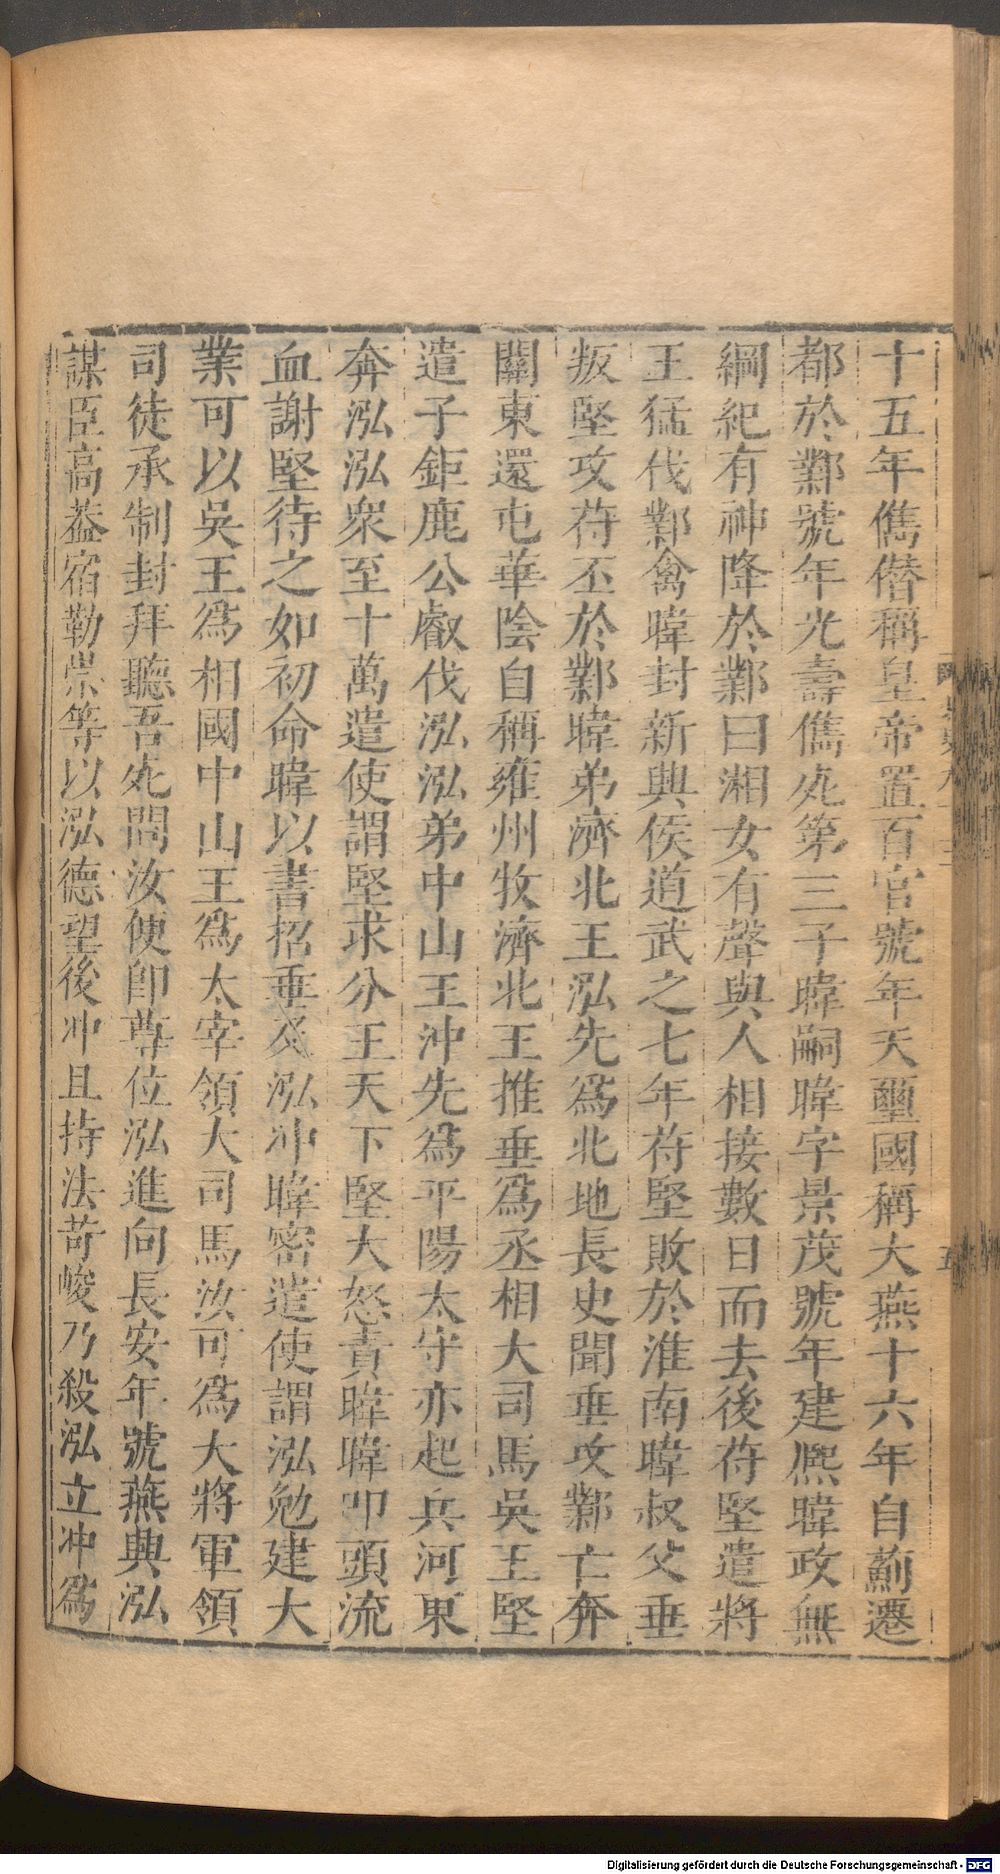 十五年儁僣稱皇帝置百官號年天璽國稱大燕十六年自薊遷
都於鄴號年光壽儁死第三子暐嗣暐字景茂號年建熈暐政無
綱紀有神降於鄴曰湘女有聲與人相接數日而去後苻堅遣將
王猛伐鄴禽暐封新興侯道武之七年苻堅敗於淮南暐叔父垂
叛堅攻苻丕於鄴暐弟濟北王泓先爲北地長史聞垂攻鄴亡奔
關東還屯華陰自稱雍州牧濟北王推垂爲丞相大司馬吳王堅
遣子鉅鹿公叡伐泓泓弟中山王沖先爲平陽太守亦起兵河東
奔泓泓衆至十萬遣使謂堅求分王天下堅大怒責暐暐叩頭流
血謝堅待之如初命暐以書招垂及泓冲暐密遣使謂泓勉建大
業可以吳王爲相國中山王爲太宰領大司馬汝可爲大將軍領
司徒承制封拜聽吾死問汝便卽尊位泓進向長安年號燕興泓
謀臣高葢宿勒崇等以泓德望後冲且持法苛峻乃殺泓立冲爲
五
Digitalisierung gefördert durch die Deutsche Forschungsgemeinschaft - DFG